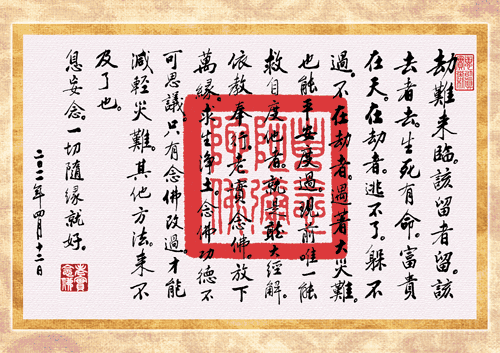 劫難來臨。該留者留。該
去者去。生死有命。富貴
在天。在劫者。逃不了。躲不
過。不在劫者。遇著大災難。
也能平安度過。現前唯一能
救自度他者。就是大經解。
依教奉行。老實念佛。放下
萬緣。求生淨土。念佛功德不
可思議。只有念佛改過。才能
減輕災難。其他方法。來不
及了也。
息妄念。一切隨緣就好。
二〇二一年四月十二日
老實念佛